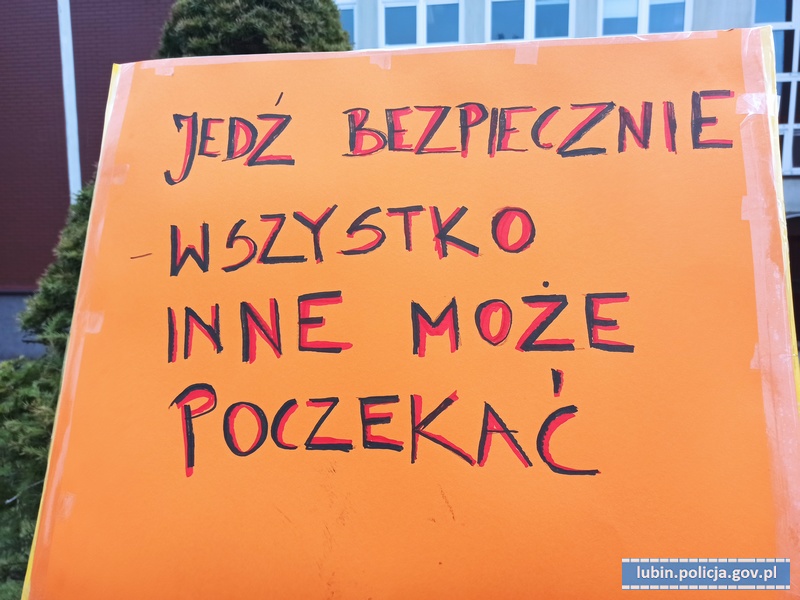 JEDŹ BEZPIECZNIE
WSZYSTKO
INNE MOŻE
POCZEKAĆ
lubin.policja.gov.pl